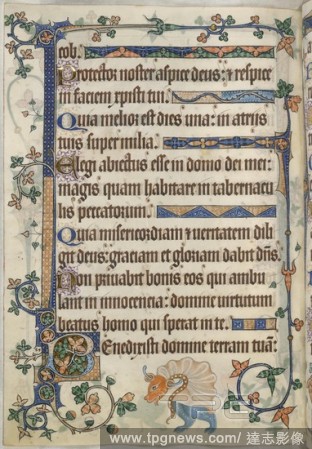 cob.
Protector noster aspice deus: & respice
in faciem xpisti tui.
Quia melior est dies una: in atriis
tuis super milia.
Elegi abiectus esse in domo dei mei:
magis quam habitare in tabernacu
lis peccatorum.
Quia misericordiam & veritatem dili
git deus: graciam et gloriam dabit dns.
Non privabit bonis eos qui ambu
lant in innocencia: domine virtutum
beatus homo qui sperat in te.
Benedixisti domine terram tuā:
www.tpgnews.com/ 達志影像